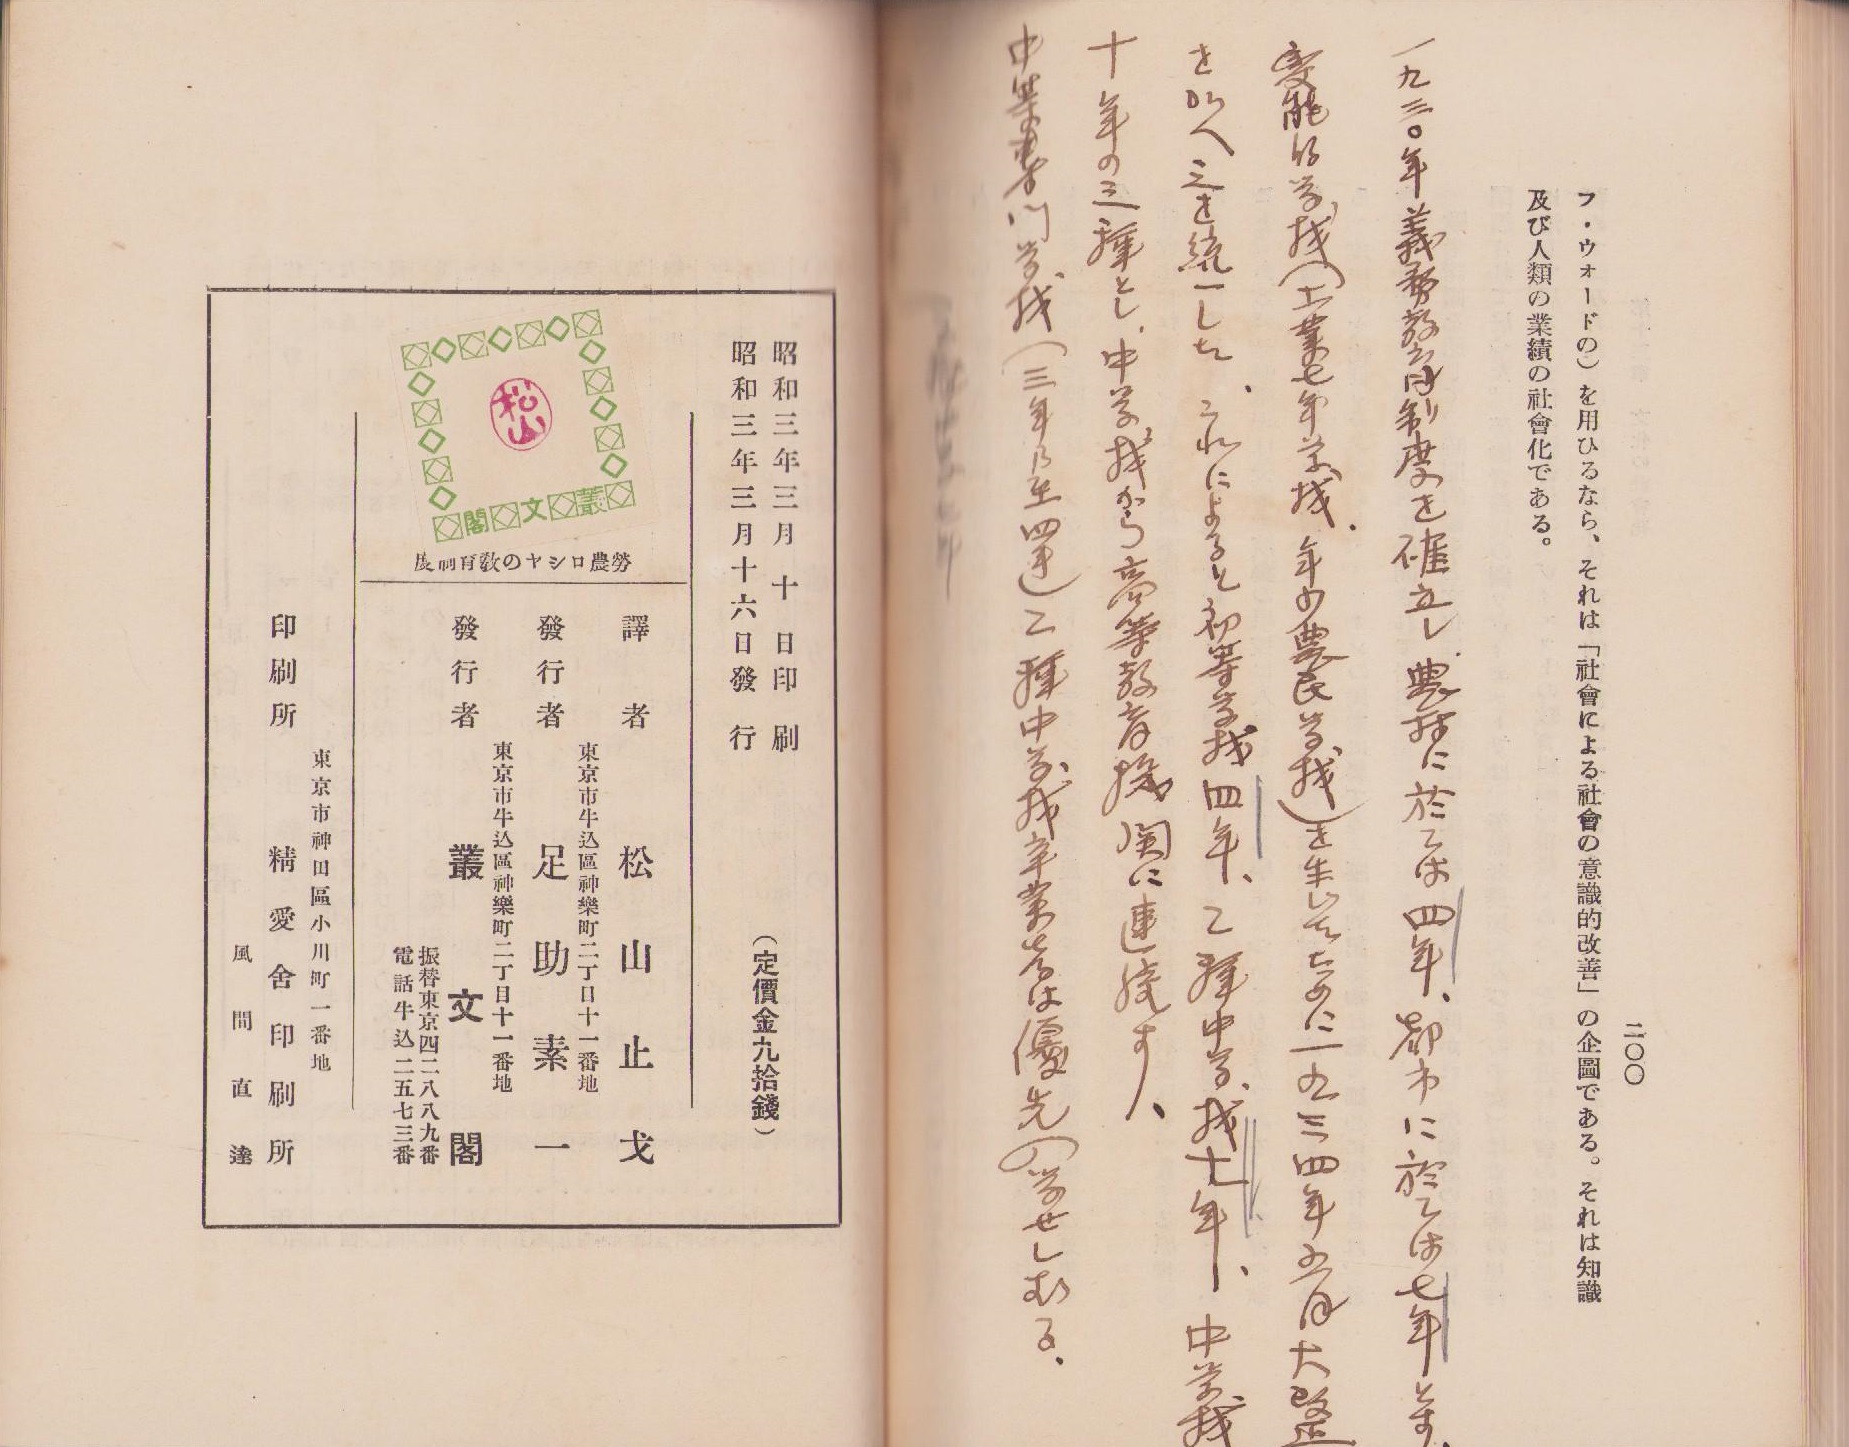 二〇〇
フ・ウォードの）を用ひるなら、それは「社會による社會の意識的改善」の企圖である。それは知識
及び人類の業績の社會化である。
一九三〇年義務教育制度を確立し、農村に於ては四年、都市に於ては七年とす、
変能的学校（工業七年学校、年少農民学校）を生ぜたために一九三四年五月大改正
を加へ之を統一した、これによると初等学校四年、乙種中学校七年、中学校
十年の三種とし、中学校から高等教育機関に連続す、
中等専門学校（三年乃至四年）乙種中学校卒業者は優先入学せしむる、
昭和三年三月十日印刷
昭和三年三月十六日發行
（定價金九拾錢）
松山
叢文閣
勞農ロシヤの教育制度
譯者 松山止戈
東京市牛込區神樂町二丁目十一番地
發行者 足助素一
東京市牛込區神樂町二丁目十一番地
發行者 叢文閣
振替東京四二八八九番
電話牛込二五七三番
東京市神田區小川町一番地
印刷所 精愛舍印刷所
風間直達